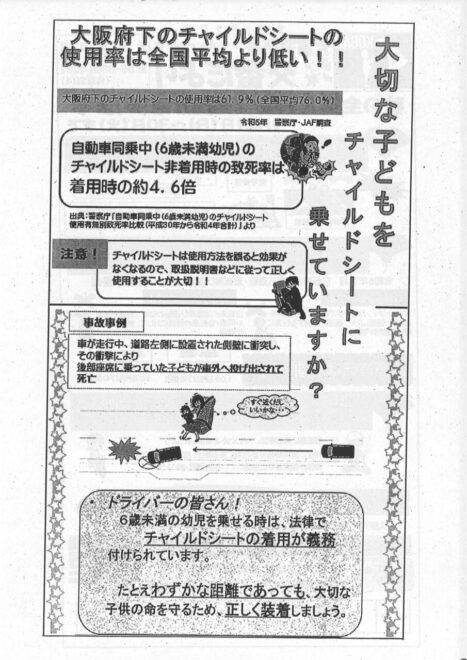 大切な子どもを
チャイルドシートに
乗せていますか？
大阪府下のチャイルドシートの
使用率は全国平均より低い！！
大阪府下のチャイルドシートの使用率は61.9％（全国平均76.0％）
令和5年　警察庁・JAF調査
自動車同乗中（6歳未満幼児）の
チャイルドシート非着用時の致死率は
着用時の約4.6倍
出典：警察庁「自動車同乗中（6歳未満幼児）のチャイルドシート
使用有無別致死率比較（平成30年から令和4年合計）」より
注意！
チャイルドシートは使用方法を誤ると効果が
なくなるので、取扱説明書などに従って正しく
使用することが大切！！
事故事例
車が走行中、道路左側に設置された側壁に衝突し、
その衝撃により
後部座席に乗っていた子どもが車外へ投げ出されて
死亡
すぐ近くだし
いいかな…
・ドライバーの皆さん！
6歳未満の幼児を乗せる時は、法律で
チャイルドシートの着用が義務
付けられています。
たとえわずかな距離であっても、大切な
子供の命を守るため、正しく装着しましょう。